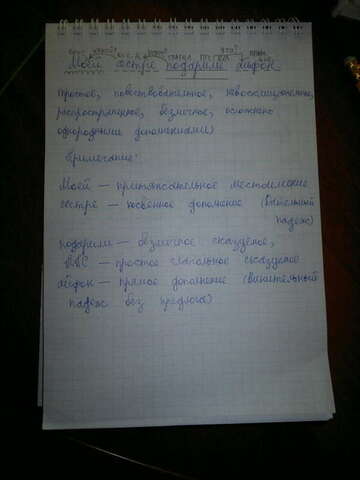 какой? кому? глагол ПГС что?
Моей сестре подарили айфон
(простое, повествовательное, невосклицательное,
распространенное, безличное, осложнено
однородными дополнениями)
Примечание:
Моей — притяжательное местоимение
сестре — косвенное дополнение (дательный
падеж)
подарили — безличное сказуемое,
ПГС — простое глагольное сказуемое
айфон — прямое дополнение (винительный
падеж без предлога)